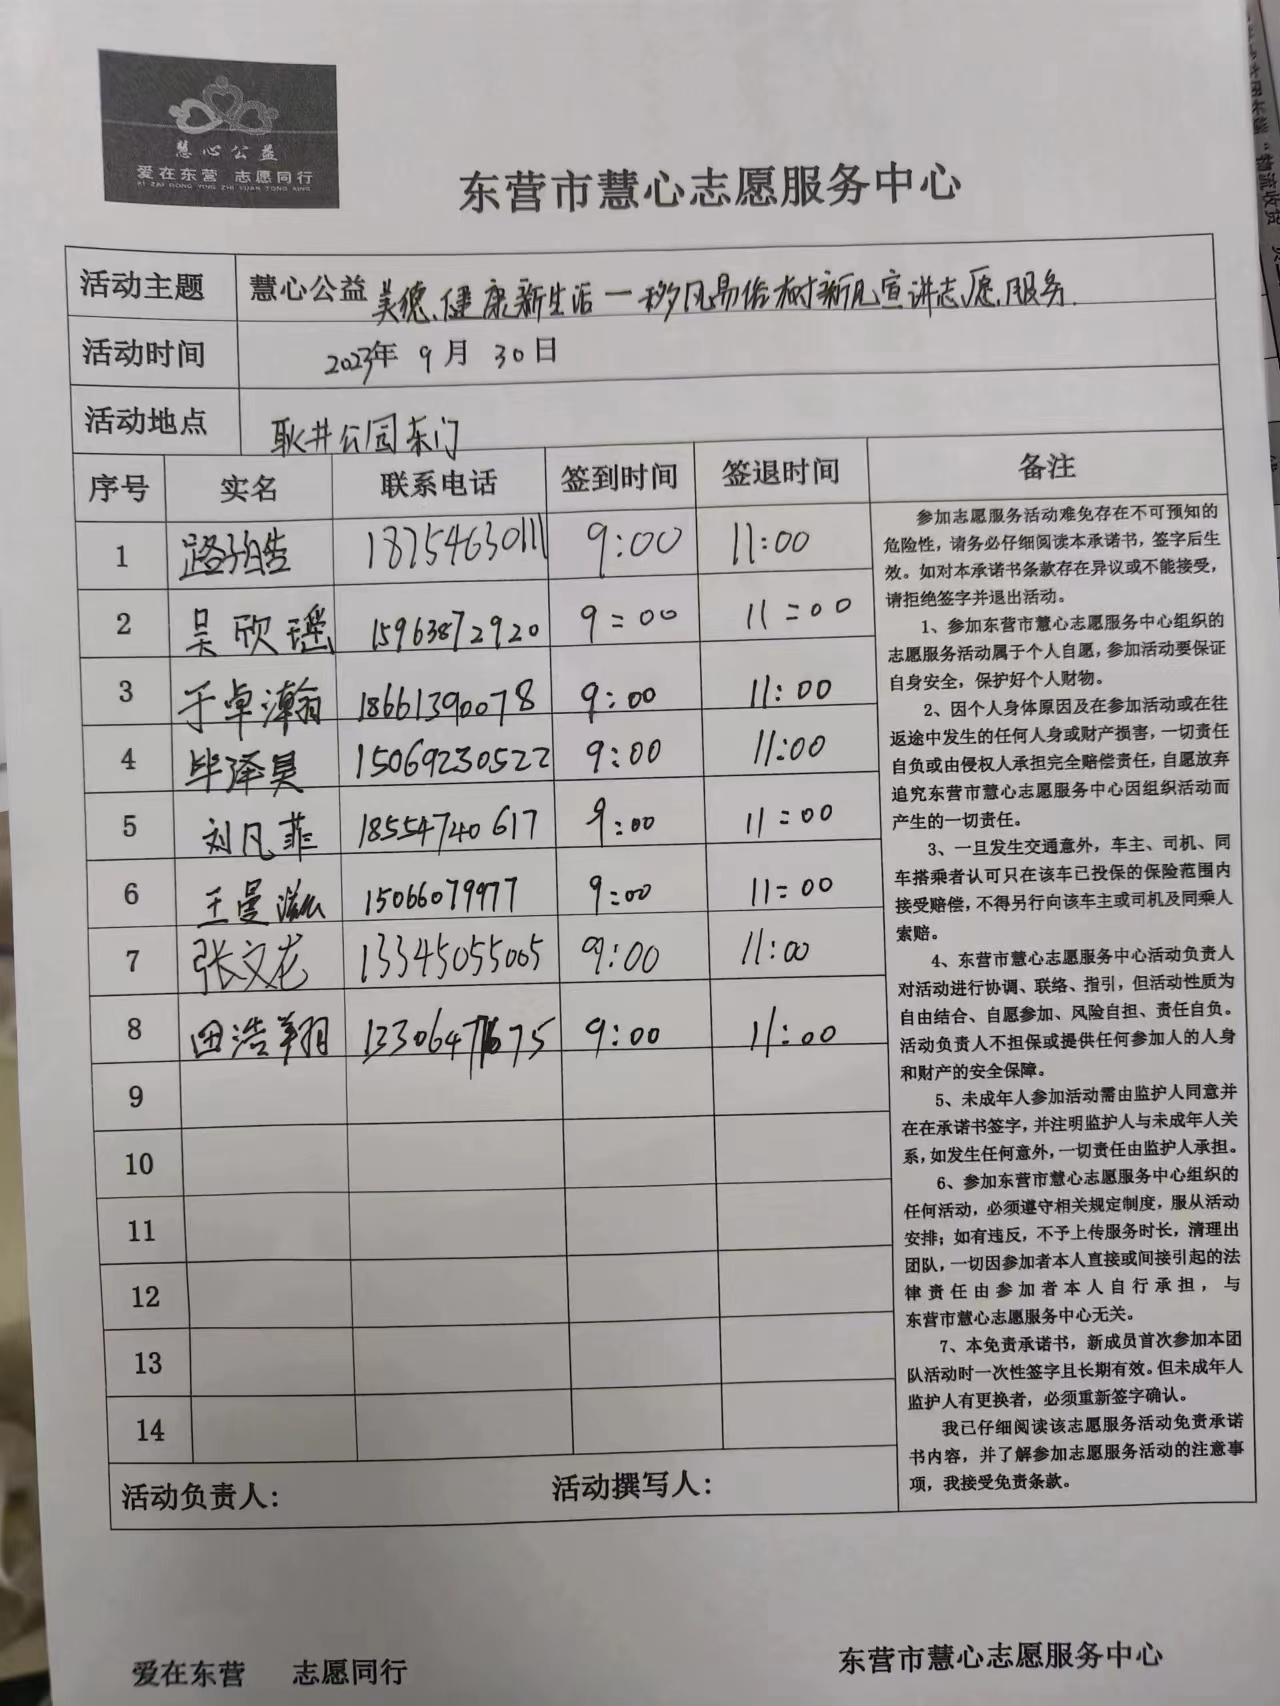 慧心公益
爱在东营 志愿同行
AI ZAI DONG YING ZHI YUAN TONG XING
东营市慧心志愿服务中心
活动主题 慧心公益 美德、健康新生活一移风易俗树新风宣讲志愿服务.
活动时间 2023年 9 月 30 日
活动地点 耿井公园东门
序号 实名 联系电话 签到时间 签退时间 备注
1 路皓 18754630111 9:00 11:00
2 吴欣瑶 15963872920 9:00 11:00
3 于卓瀚 18661390078 9:00 11:00
4 毕泽昊 15069230522 9:00 11:00
5 刘凡菲 18554740617 9:00 11:00
6 王曼 15066079977 9:00 11:00
7 张文龙 13345055005 9:00 11:00
8 田浩翔 9:00 11:00
9
10
11
12
13
14
参加志愿服务活动难免存在不可预知的
危险性，请务必仔细阅读本承诺书，签字后生
效。如对本承诺书条款存在异议或不能接受，
请拒绝签字并退出活动。
1、参加东营市慧心志愿服务中心组织的
志愿服务活动属于个人自愿，参加活动要保证
自身安全，保护好个人财物。
2、因个人身体原因及在参加活动或在往
返途中发生的任何人身或财产损害，一切责任
自负或由侵权人承担完全赔偿责任，自愿放弃
追究东营市慧心志愿服务中心因组织活动而
产生的一切责任。
3、一旦发生交通意外，车主、司机、同
车搭乘者认可只在该车已投保的保险范围内
接受赔偿，不得另行向该车主或司机及同乘人
索赔。
4、东营市慧心志愿服务中心活动负责人
对活动进行协调、联络、指引，但活动性质为
自由结合、自愿参加、风险自担、责任自负。
活动负责人不担保或提供任何参加人的人身
和财产的安全保障。
5、未成年人参加活动需由监护人同意并
在在承诺书签字，并注明监护人与未成年人关
系，如发生任何意外，一切责任由监护人承担。
6、参加东营市慧心志愿服务中心组织的
任何活动，必须遵守相关规定制度，服从活动
安排；如有违反，不予上传服务时长，清理出
团队，一切因参加者本人直接或间接引起的法
律责任由参加者本人自行承担，与
东营市慧心志愿服务中心无关。
7、本免责承诺书，新成员首次参加本团
队活动时一次性签字且长期有效。但未成年人
监护人有更换者，必须重新签字确认。
我已仔细阅读该志愿服务活动免责承诺
书内容，并了解参加志愿服务活动的注意事
项，我接受免责条款。
活动负责人： 活动撰写人：
爱在东营 志愿同行 东营市慧心志愿服务中心